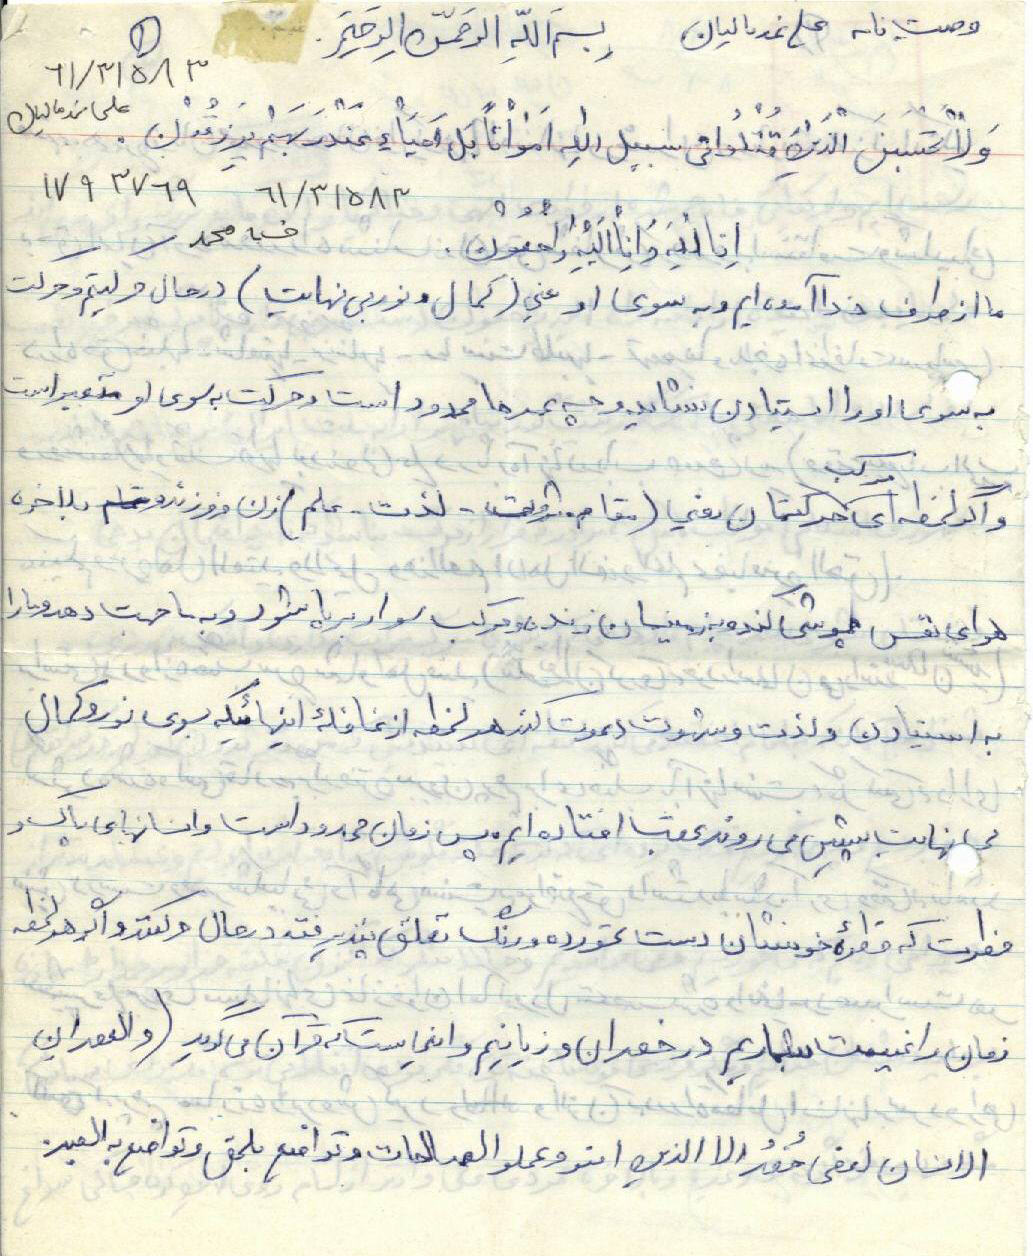 وصیت نامه علی نمدمالیان بسم الله الرحمن الرحیم
۱
۶۱/۳۱۵۸۳
علی نمدمالیان
وَلاْ تَحْسَبَنَ الْذَینَ قُتْلُوا فی سبیل الله اَمْوْاتاً بَل اَحیْاء عِنْدَ رَبَهِم یرزَقُوْن .
۱۷۹۳۷۶۹ ۶۱/۳۱۵۸۳
انا لله وَ انْا اِلَیْهِ رْاجِعُوْن .
ما از طرف خدا آمده ایم و به سوی او یعنی (کمال و نور بی نهایت) در حال حرکتیم و حرکت
به سوی او را ایستادن نشاید و چه عمرها محدود است و حرکت به سوی او متغیر است
مرکب
و اگر لحظه ای حرکتمان یعنی (مقام - شهرت - لذت - علم) زن و فرزند و بلاخره
هوای نفس کند و به زمینمان زند و مرکب سوار بر پا شود و به ما جهت دهد و ما را
به ایستادن و لذت و شهوت دعوت کند هر لحظه از غافله اینهائیکه بسوی نور و کمال
بی نهایت پیش می روند عقب افتاده ایم پس زمان محدود است و انسانهای پاک و
فطرت که فطرهٔ خویشتان دست نخورده و رنگ تعلق نپذیرفته در حال حرکتند و اگر هر لحظه
زمان را غنیمت نشماریم در خسران و زیانیم و اینجاست که قرآن می گوید (والعصر ان
الانسان لفی خُسْر الا الذین امنو و عملو الصالحات و تواصع بلحق و تواصع به الصبر.